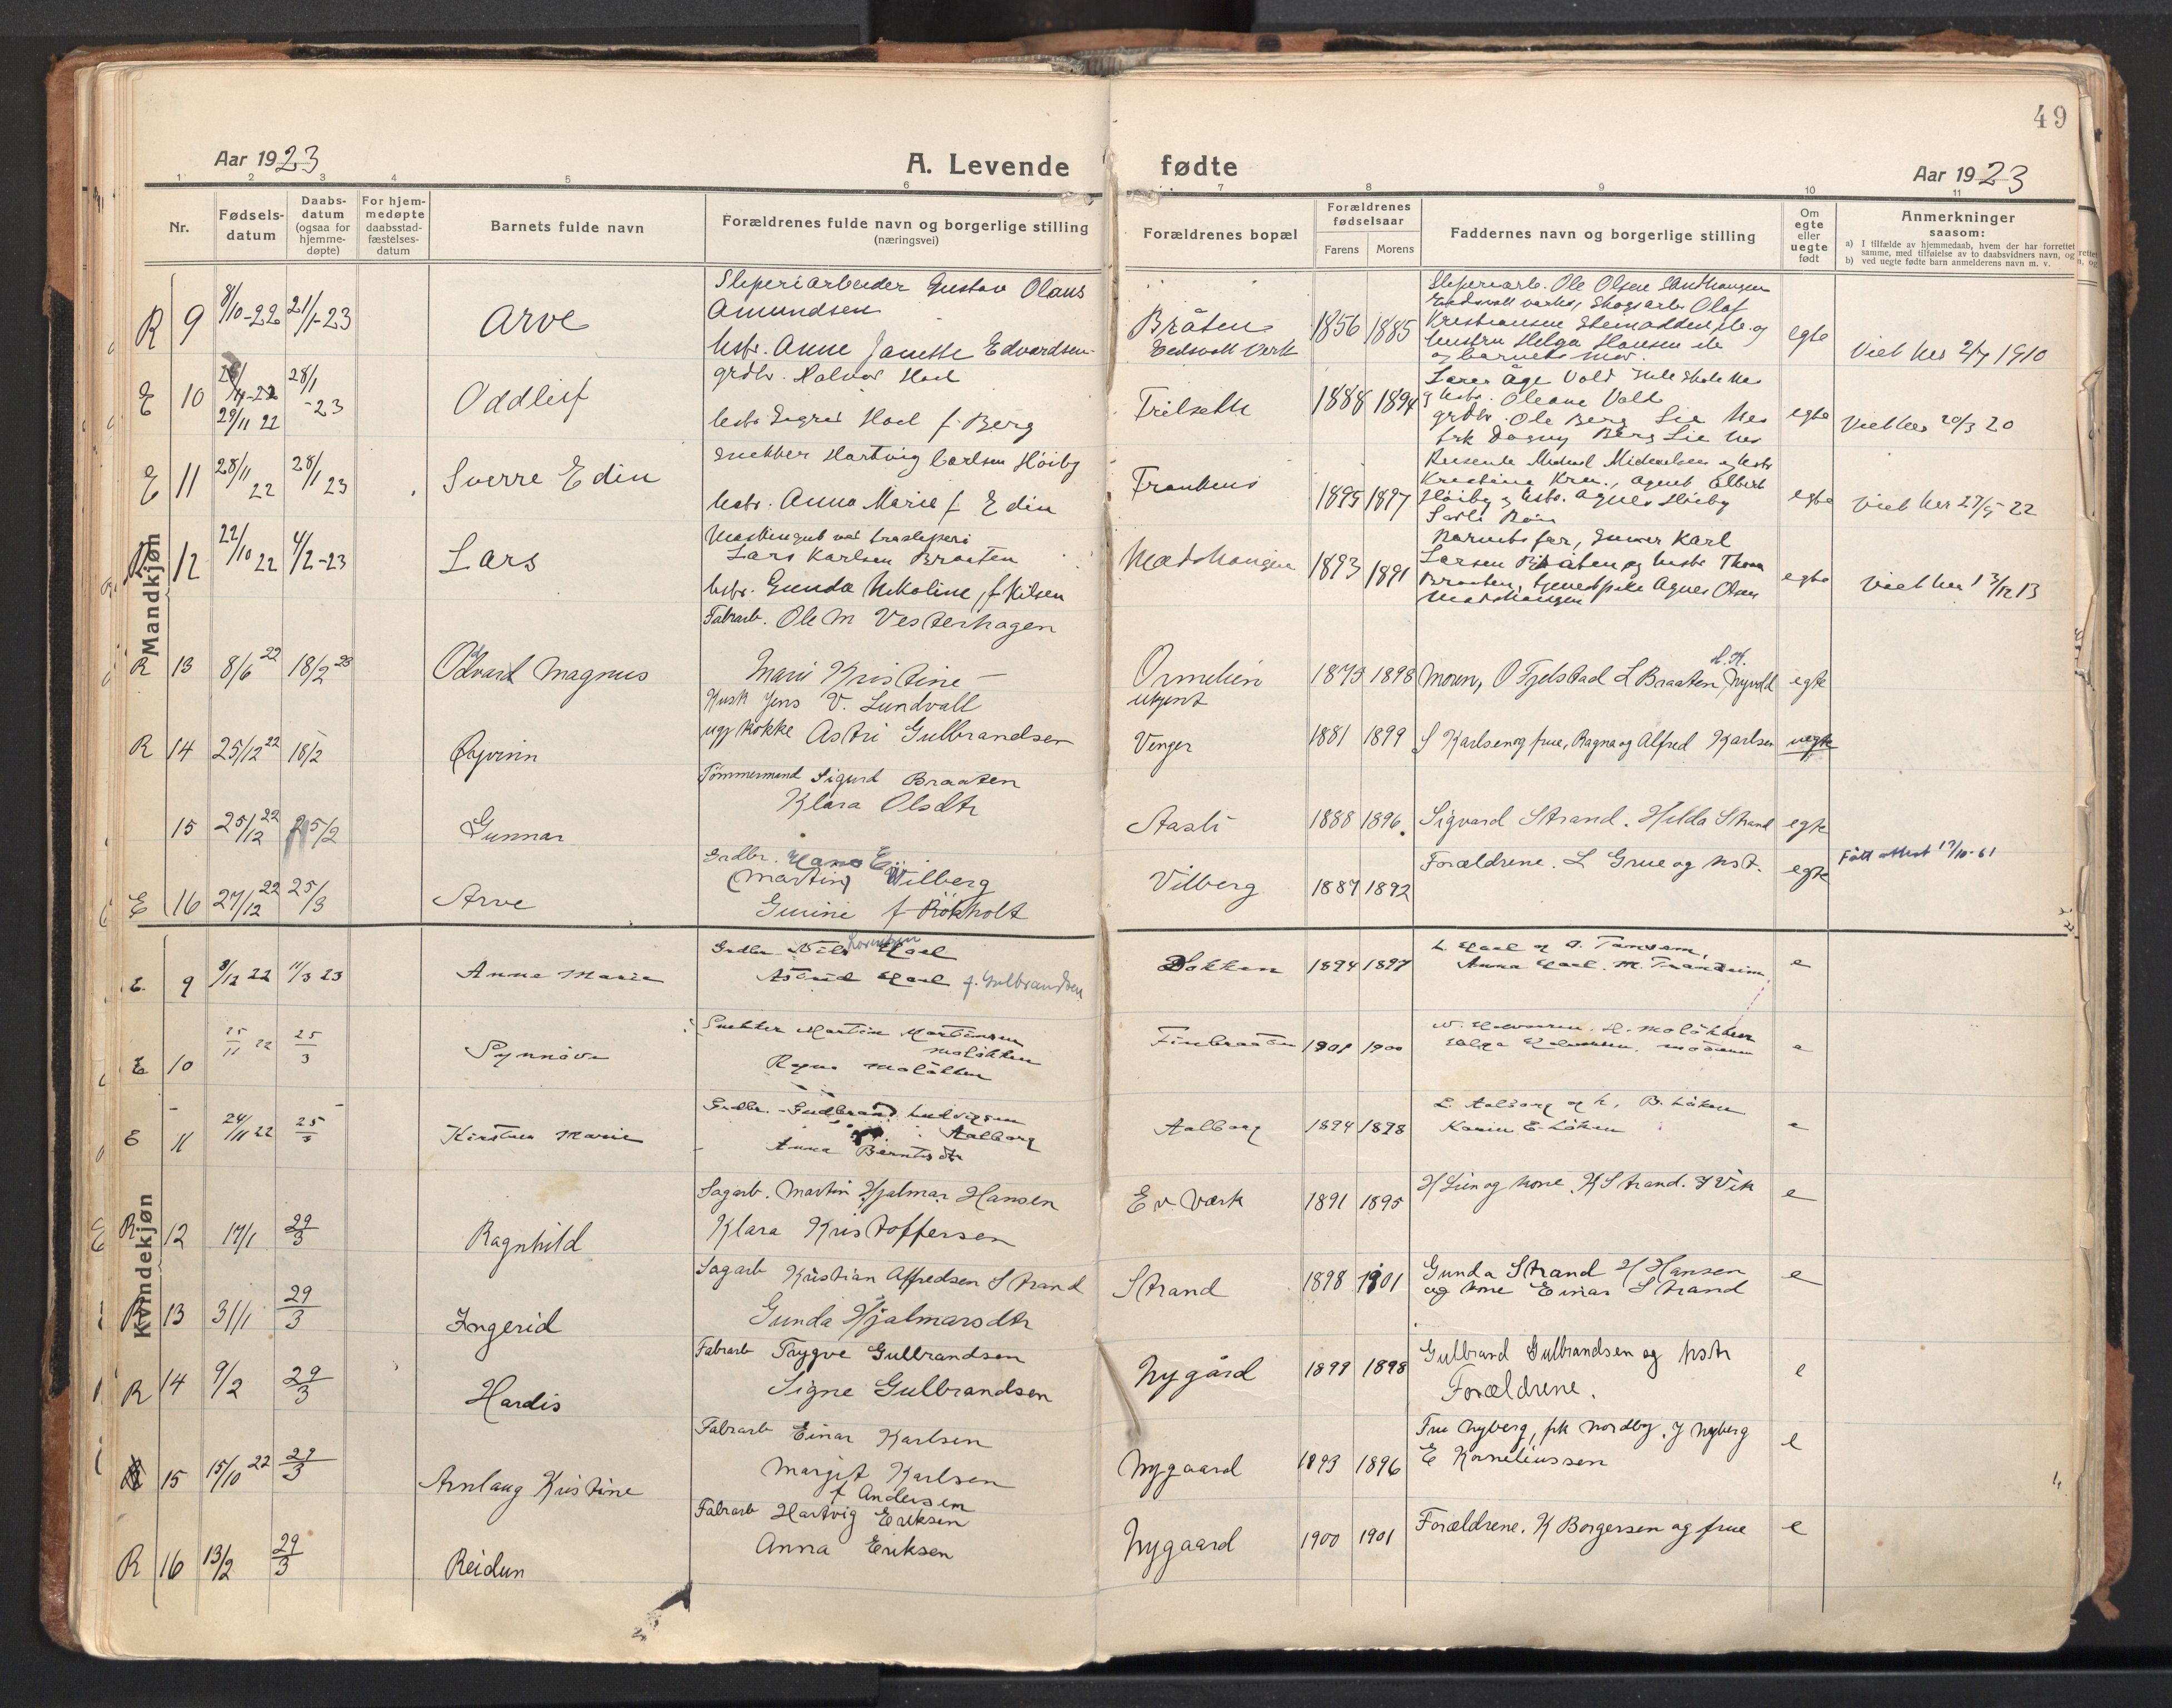 49
Aar 1923
A. Levende fødte
Aar 1923
1 2 3 4 5 6 7 8 9 10 11
Nr.
Fødsels-
datum
Daabs-
datum
(ogsaa for
hjemme-
døpte)
For hjem-
medøpte
daabsstad-
fæstelses-
datum
Barnets fulde navn
Forældrenes fulde navn og borgerlige stilling
(næringsvei)
Forældrenes bopæl
Forældrenes
fødselsaar
Farens Morens
Faddernes navn og borgerlige stilling
Om
egte
eller
uegte
født
Anmerkninger
saasom:
a) I tilfælde av hjemmedaab, hvem der har forrettet
samme, med tilføielse av to daabsvidners navn, og
b) ved uegte fødte barn anmelderens navn m. v.
Mandkjøn
R 9 8/10-22 21/1-23 Arve
Sliperiarbeider Gustav Olaus
Amundsen
hstr. Anne Janette Edvardsen
Bråten
Eidsvoll Verk
1856 1885
Sliperiarb. Ole Olsen Sandhaugen
Eidsvoll værk, Skogsarb. Olaf
Kristiansen
hustru Helga Hansen
og barnets mor.
egte
Viet her 2/7 1910
E 10 29/11 22 28/1-23 Oddleif
grdbr. Halvor Hoel
hstr Sigrid Hoel f. Berg
Trilseth
1888 1894
Lærer Åge Vold
g hstr. Oleane Vold
grdbr. Ole Berg Lie Nes
frk Dagny Berg Lie Nes
egte
Viet her 20/3 20
E 11 28/11 22 28/1 23 Sverre Edin
Snekker Hartvig Carlsen Höiby
hstr. Anna Marie f Edin
1895 1897
Kristine Kra., agent Albert
Höiby g hstr. Agnes Höiby
egte
Viet her 27/5-22
R 12 22/10 22 4/2-23 Lars
Lars Karlsen Braaten
hstr. Gunda Nikoline, f Nilsen
Matshaugen
1893 1891
Barnets far, Karl
Larsen Bråten og hustr Thora
Braaten, tjenestpike Agnes Olsen
Matshaugen
egte
Viet her 13/12 13
R 13 8/6 22 18/2 23 Odvard Magnus
Fabrarb. Ole M Vesterhagen
Mari Kristine —
Ormlien
utgent
1873 1898
Moren, O Fjelstad L Braaten, H. K. Nyvold
egte
R 14 25/12 22 18/2 Øyvinn
Kusk Jens V. Lundvall
ugg kokke Astri Gulbrandsen
Venger
1881 1899
S Karlsen og frue, Ragna og Alfred Karlsen
uegte
15 25/12 22 25/2 Gunnar
Tömmermand Sigurd Braaten
Klara Olsdtr
Aasli
1888 1896.
Sigvard Strand. Hilda Strand
egte
E 16 27/12 22 25/3 Arve
Grdbr. Hans E
(Martin) Wilberg
Gurine f Rökholt
Vilberg
1887 1892
Forældrene. L Grue og hst.
egte
Fått attest 17/10-61
Kvindekjøn
E. 9 8/12 22 11/3 23 Anna Marie
Grdbr Nils Lorentzen Hoel
Astrid Hoel f. Gulbrandsen
Dokken
1894 1897
L. Hoel og O. Tansem,
Anna Hoel. M. Trandum
e
E 10 25/11 22 25/3 Synnöve
Snekker Martin Martinsen
Molökken
Ragna Molökken
Finbraaten
1901 1900
Molökken
e
E 11 24/11 22 25/3 Kirsten Marie
Grdbr. Gudbrand Ludvigsen
Aalborg
Anna Berntsdtr
Aalborg
1894 1898
L. Aalborg og h, B. Löken
Karin E. Löken
e
R 12 17/1 29/3 Ragnhild
Sagarb. Martin Hjalmar Hansen
Klara Kristoffersen
Ev Værk
1891 1895
H Lien og kone, K Strand. Y Vik
e
R 13 31/1 29/3 Ingerid
Sagarb Kristian Alfredsen Strand
Gunda Hjalmarsdtr
Strand
1898 1901
Gunda Strand H Hansen
og kone Einar Strand
e
R 14 9/2 29/3 Hardis
Fabrarb Trygve Gulbrandsen
Signe Gulbrandsen
Nygård
1899 1898
Gulbrand Gulbrandsen og hstr
Forældrene.
e
R 15 15/10 22 29/3 Arnlaug Kristine
Fabrarb Einar Karlsen
Margit Karlsen
f Andersen
Nygaard
1893 1896
Fru Nyberg, frk Nordby. J Nyberg
E Korneliussen
e
R 16 13/2 29/3 Reidun
Fabrarb Hartvig Eriksen
Anna Eriksen
Nygaard
1900 1901
Forældrene. K Borgersen og frue
e